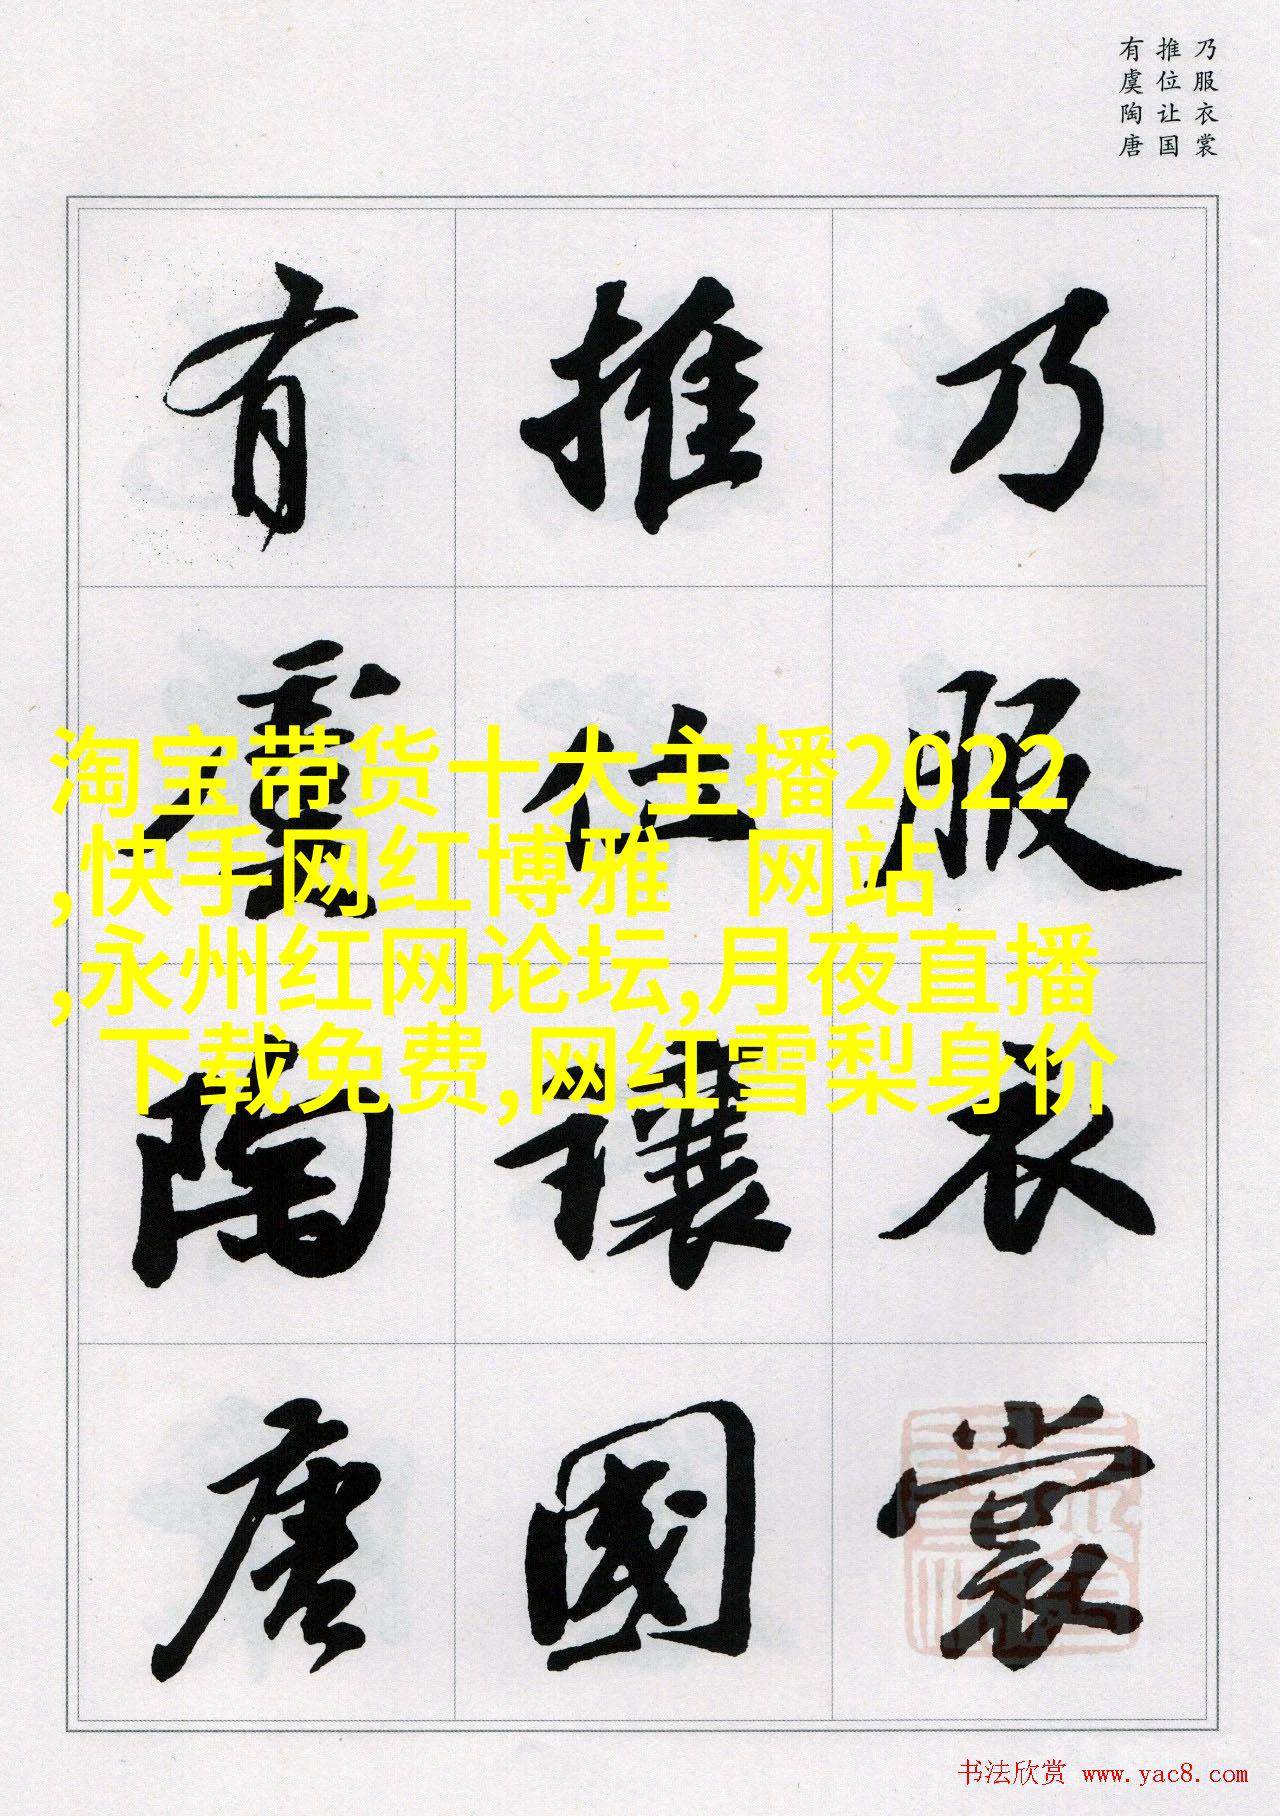 乃服衣裳
推位让国
有虞陶唐
乃服衣裳
推位讓國
有虞陶唐
淘宝带货十大主播2022
,快手网红博雅 网站
,永州红网论坛,月夜直播
下载免费,网红雪梨身价
书法欣赏 www.yac8.com